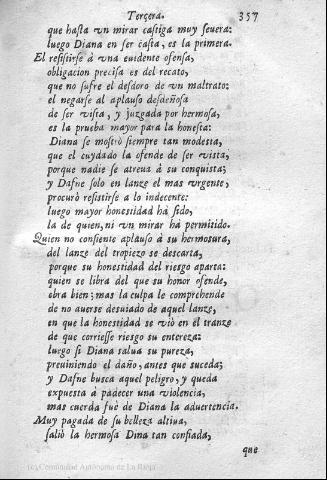 Tercera. 357
que hasta vn mirar castiga muy seuera:
luego Diana en ser casta, es la primera.
El resistirse à vna euidente ofensa,
obligacion precisa es del recato,
que no sufre el desdoro de vn maltrato:
el negarse al aplauso desdeñosa
de ser vista, y juzgada por hermosa,
es la prueba mayor para la honesta:
Diana se mostrò siempre tan modesta,
que el cuydado la ofende de ser vista,
porque nadie se atreua à su conquista;
y Dafne solo en lanze el mas vrgente,
procurò resistirse a lo indecente:
luego mayor honestidad hà sido,
la de quien, ni vn mirar hà permitido.
Quien no consiente aplauso à su hermosura,
del lanze del tropiezo se descarta,
porque su honestidad del riesgo aparta:
quien se libra del que su honor ofende,
obra bien; mas la culpa le comprehende
de no auerse desuiado de aquel lanze,
en que la honestidad se viò en el tranze
de que corriesse riesgo su entereza:
luego si Diana salua su pureza,
preuiniendo el daño, antes que suceda;
y Dafne busca aquel peligro, y queda
expuesta à padecer una violencia,
mas cuerda fuè de Diana la aduertencia.
Muy pagada de su belleza altiua,
saliò la hermosa Dina tan confiada,
que
(c) Comunidad Autónoma de La Rioja